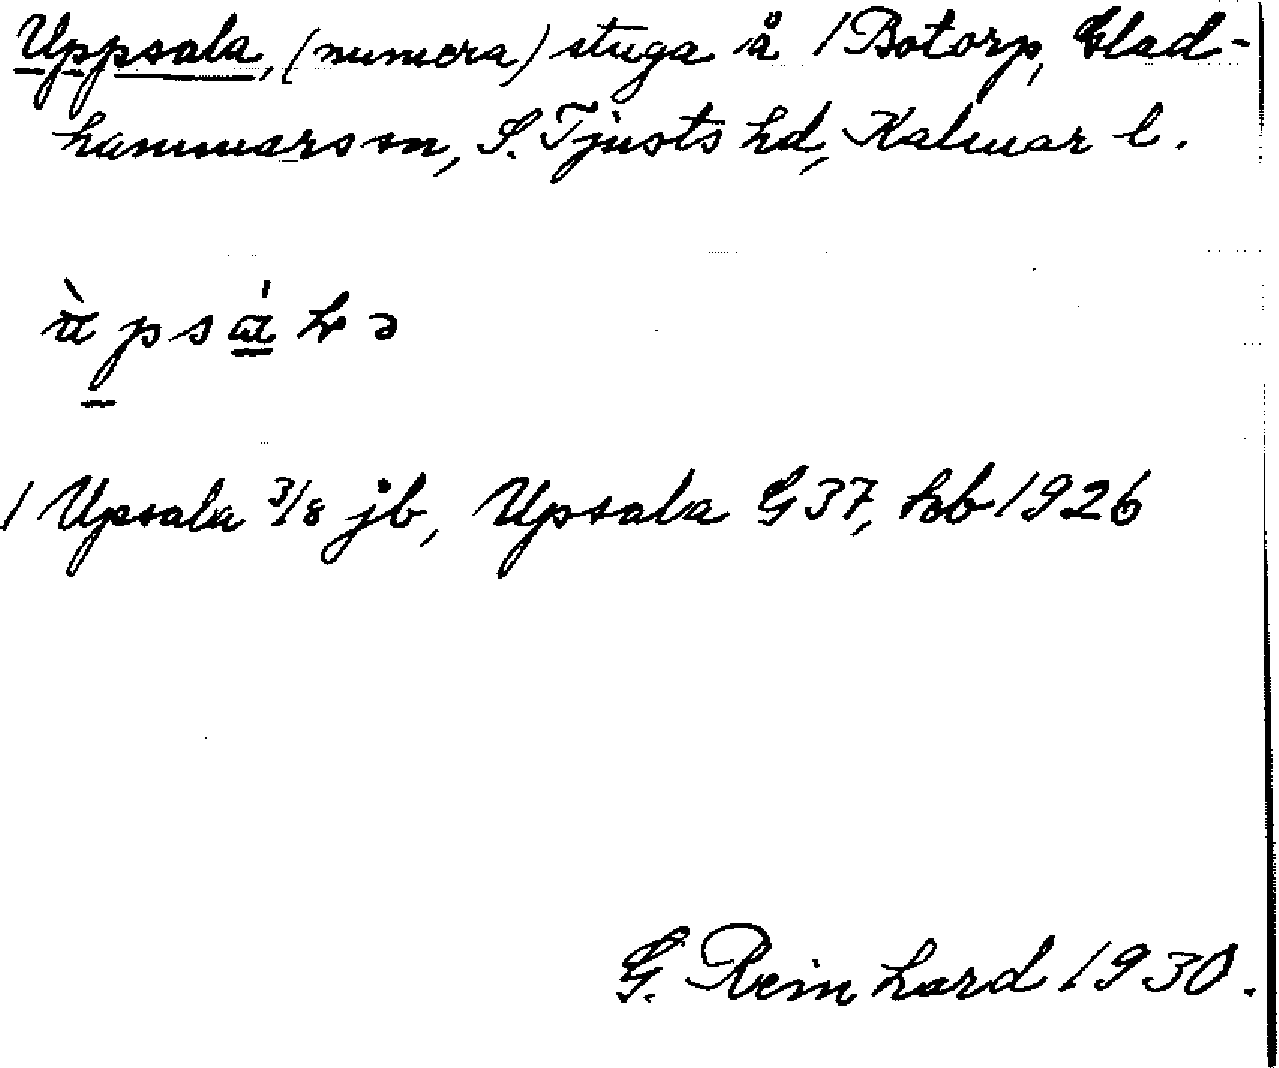 Uppsala, (numera) stuga å /Botorp, Glad-
hammars sn, S. Tjusts hd, Kalmar l.
/ Upsala 3/8 jb, Upsala G 37, kb 1926
G. Reinhard 1930.